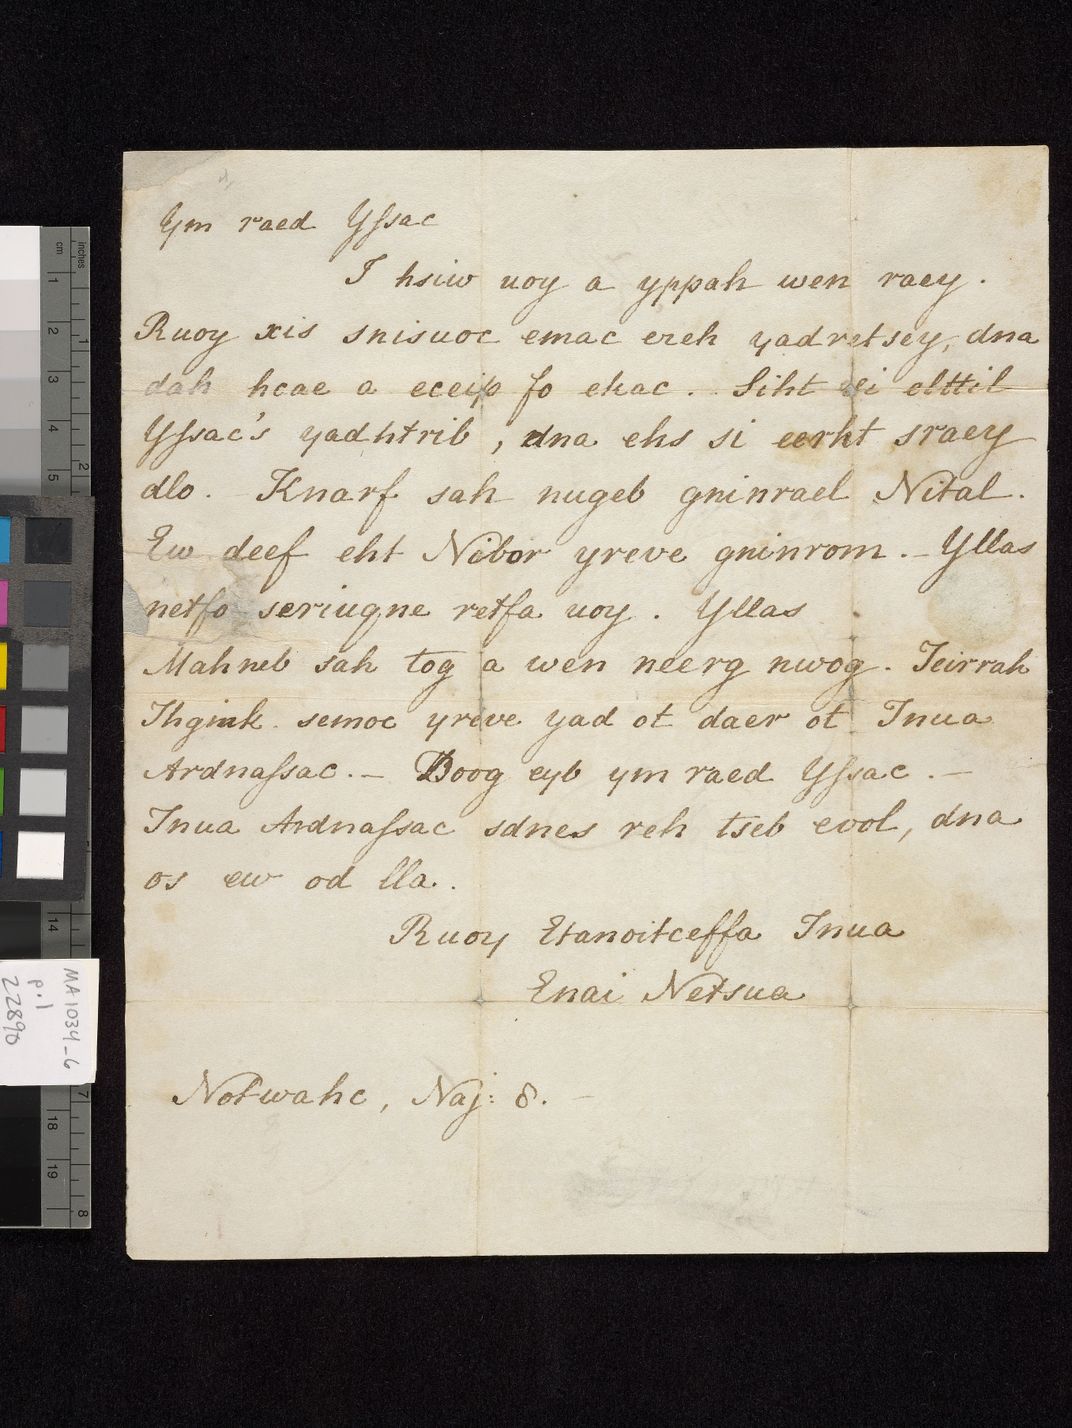 Ym raed Yssac
I hsiw uoy a yppah wen raey.
Ruoy xis snisuoc emac ereh yadretsey, dna
dah hcae a eceip fo ekac. Siht si elttil
Yssac's yadhtrib, dna ehs si eerht sraey
dlo. Knarf sah nugeb gninrael Nital.
Ew deef eht Nibor yreve gninrom.— Yllas
netfo seriuqne retfa uoy. Yllas
Mahneb sah tog a wen neerg nwog. Teirrah
Thgink semoc yreve yad ot daer ot Tnua
Ardnassac.— Doog eyb ym raed Yssac.—
Tnua Ardnassac sdnes reh tseb evol, dna
os ew od lla.
Ruoy Etanoitceffa Tnua
Enai Netsua
Notwahc, Naj: 8.
cm
inches
1
2
3
4
5
1
2
14
18
19
7
8
MA 1034-6
p.1
22890